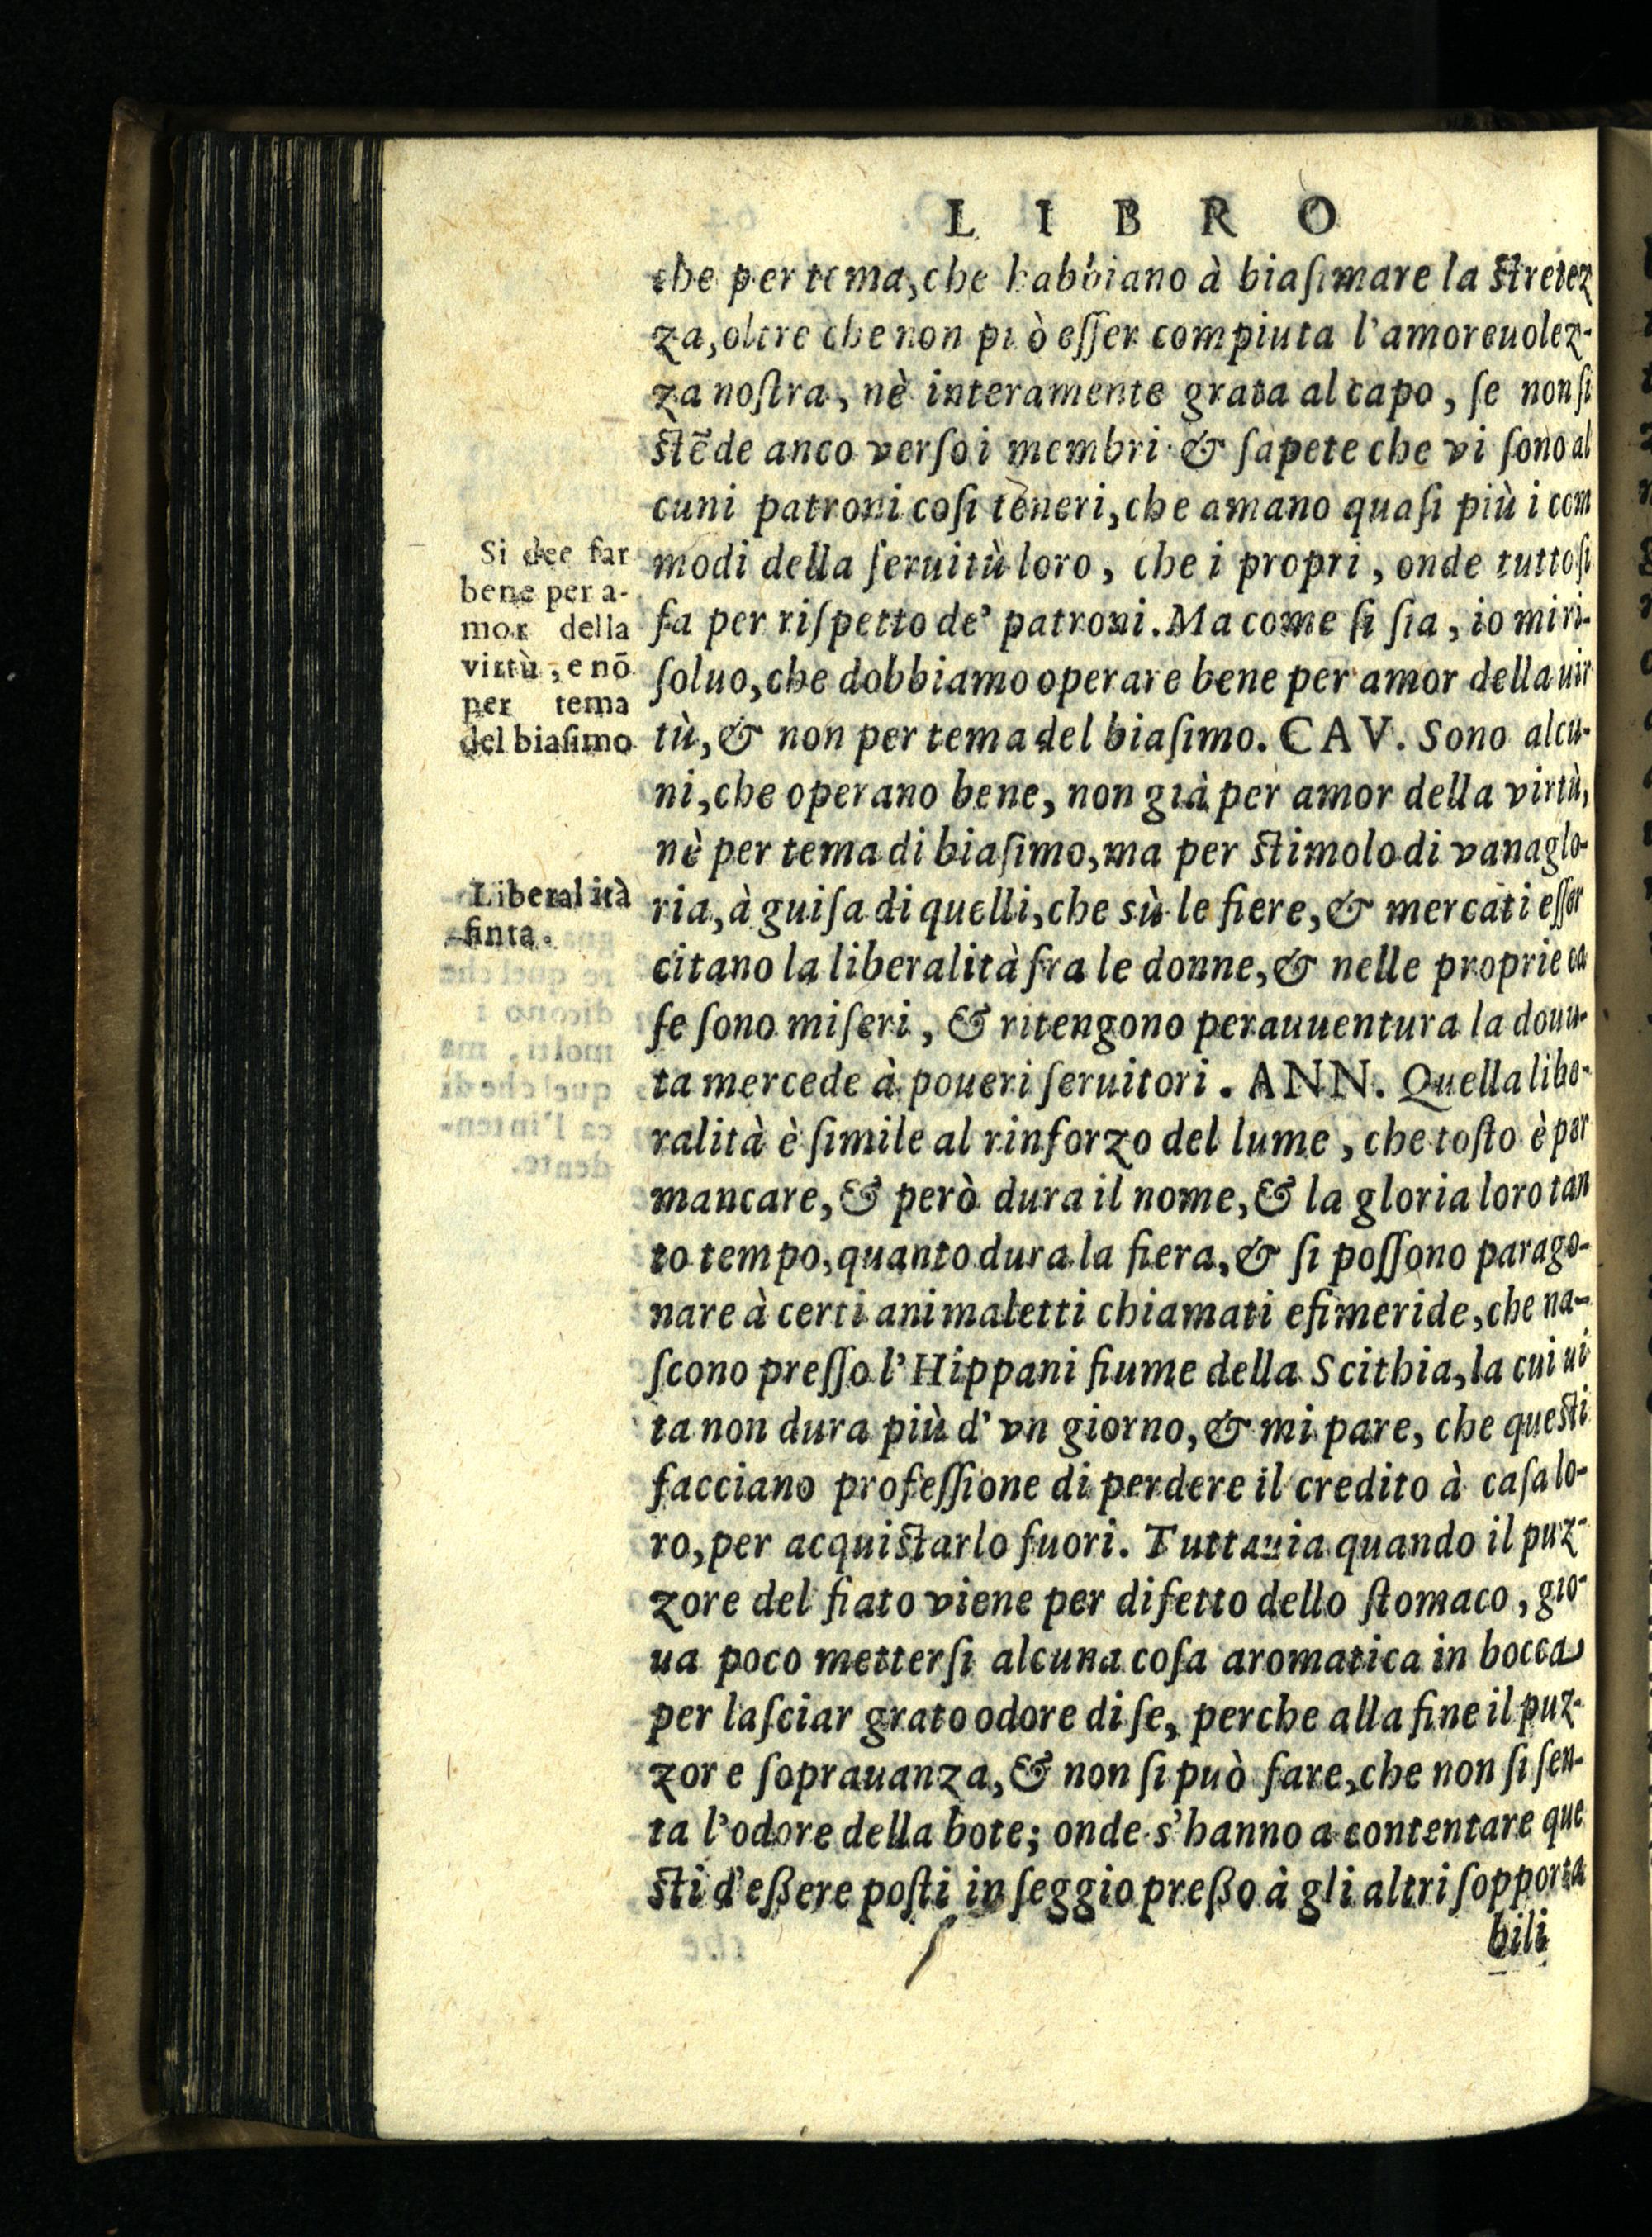 LIBRO
che per tema, che habbiano à biaſimare la ſtretez
za, oltre che non può eſſer compiuta l'amoreuolez-
za noſtra, nè interamente grata al capo, ſe non ſi
ſtẽde anco verſo i membri & ſapete che vi ſono al
cuni patroni coſi teneri, che amano quaſi più i com
modi della ſeruitù loro, che i propri, onde tutto ſi
fa per riſpetto de' patroni. Ma come ſi ſia, io mi ri-
ſoluo, che dobbiamo operare bene per amor della uir
tù, & non per tema del biaſimo. CAV. Sono alcu-
ni, che operano bene, non già per amor della virtù,
nè per tema di biaſimo, ma per ſtimolo di vanaglo-
ria, à guiſa di quelli, che sù le fiere, & mercati eſſer
citano la liberalità fra le donne, & nelle proprie ca
ſe ſono miſeri, & ritengono perauuentura la douu-
ta mercede à poueri ſeruitori. ANN. Quella libe-
ralità è ſimile al rinforzo del lume, che toſto è per
mancare, & però dura il nome, & la gloria loro tan
to tempo, quanto dura la fiera, & ſi poſſono parago-
nare à certi animaletti chiamati efimeride, che na-
ſcono preſſo l'Hippani fiume della Scithia, la cui ui
ta non dura più d'vn giorno, & mi pare, che queſti
facciano profeſſione di perdere il credito à caſa lo-
ro, per acquiſtarlo fuori. Tuttauia quando il puz-
zore del fiato viene per difetto dello ſtomaco, gio-
ua poco metterſi alcuna coſa aromatica in bocca
per laſciar grato odore di ſe, perche alla fine il puz-
zore ſoprauanza, & non ſi può fare, che non ſi ſen-
ta l'odore della bote; onde s'hanno a contentare que
ſti d'eßere poſti in ſeggio preßo à gli altri ſopporta
bili
Si dee far
bene per a-
mor della
virtù, e nõ
per tema
del biaſimo
Liberalità
finta.